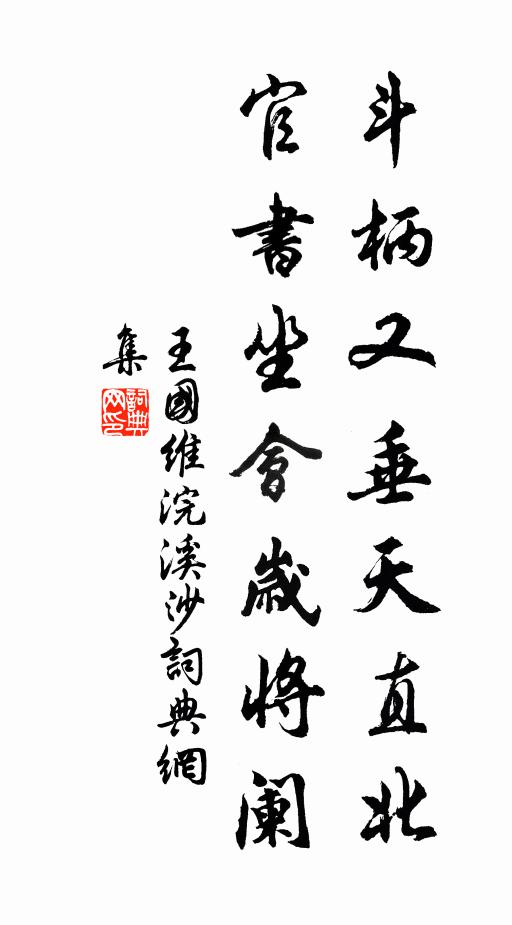 斗柄又垂天直北
官書坐會歲將闌
王國維浣溪沙詞典網
集
詞典
网印